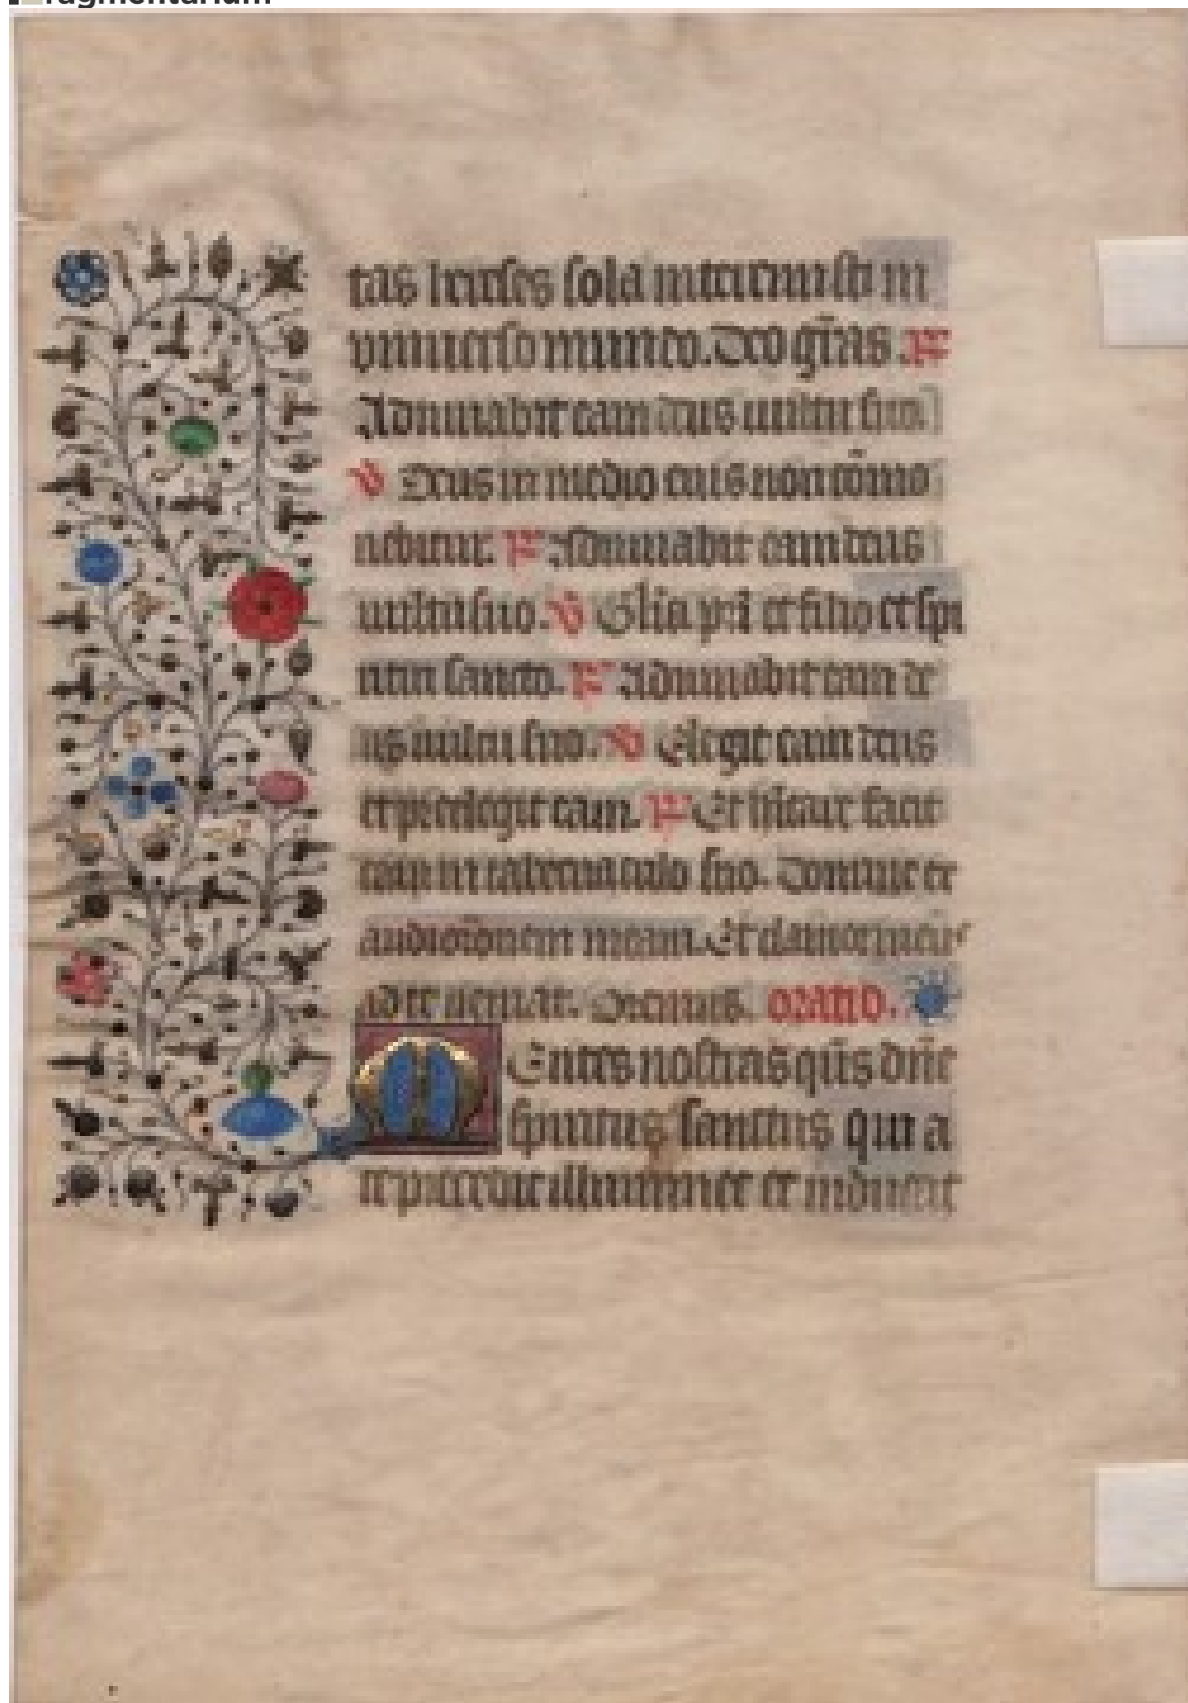 ragmentarium
tas hereses sola interemisti in
vniuerso mundo. Deo gr̃as. R
Adiuuabit eam deus uultu suo.
V Deus in medio eius non cõmo
uebitur. R Adiuuabit eam deus
uultu suo. V Glia pr̃i et filio et spi
ritui sancto. R Adiuuabit eam de
us uultu suo. V Elegit eam deus
et preelegit eam. R Et habitare facit
eam in tabernaculo suo. Domine ex
audi orõnem meam. Et clamor meus
ad te ueniat. Oremus. oratio.
Mentes nostras qũs dñe
spiritus sanctus qui a
te procedit illuminet et inducat